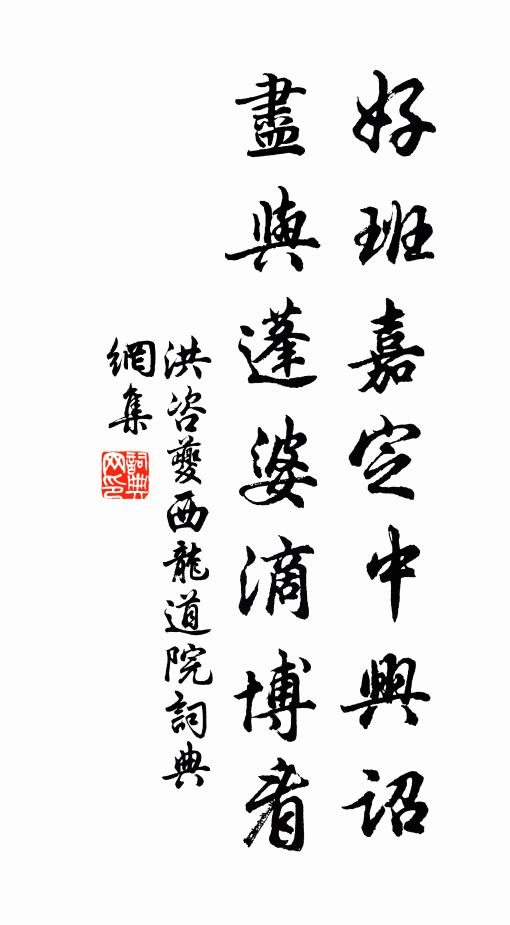 好班嘉定中興詔
盡與蓬婆滴博看
洪咨夔西龍道院詞典
網集
詞典網印